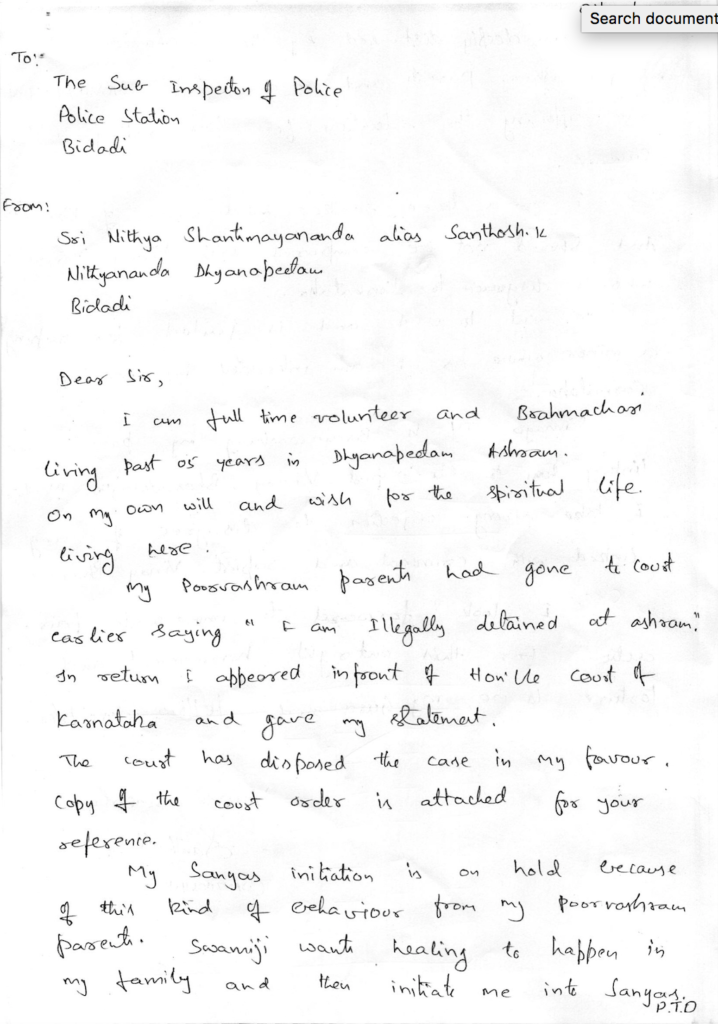 Search document
To:-
The Sub Inspector of Police
Police Station
Bidadi
From:
Sri Nithya Shantimayananda alias Santhosh. K
Nithyananda Dhyanapeetam
Bidadi
Dear Sir,
I am full time volunteer and Brahmachari
living past 05 years in Dhyanapeetam Ashram.
On my own will and wish for the spiritual life.
living here.
My Poorvashram parents had gone to court
earlier saying " I am Illegally detained at ashram."
In return I appeared infront of Hon'ble court of
Karnataka and gave my statement.
The court has disposed the case in my favour.
Copy of the court order is attached for your
reference.
My Sanyas initiation is on hold because
of this kind of behaviour from my poorvashram
parents. Swamiji wants healing to happen in
my family and then initiate me into Sanyas.
P.T.O